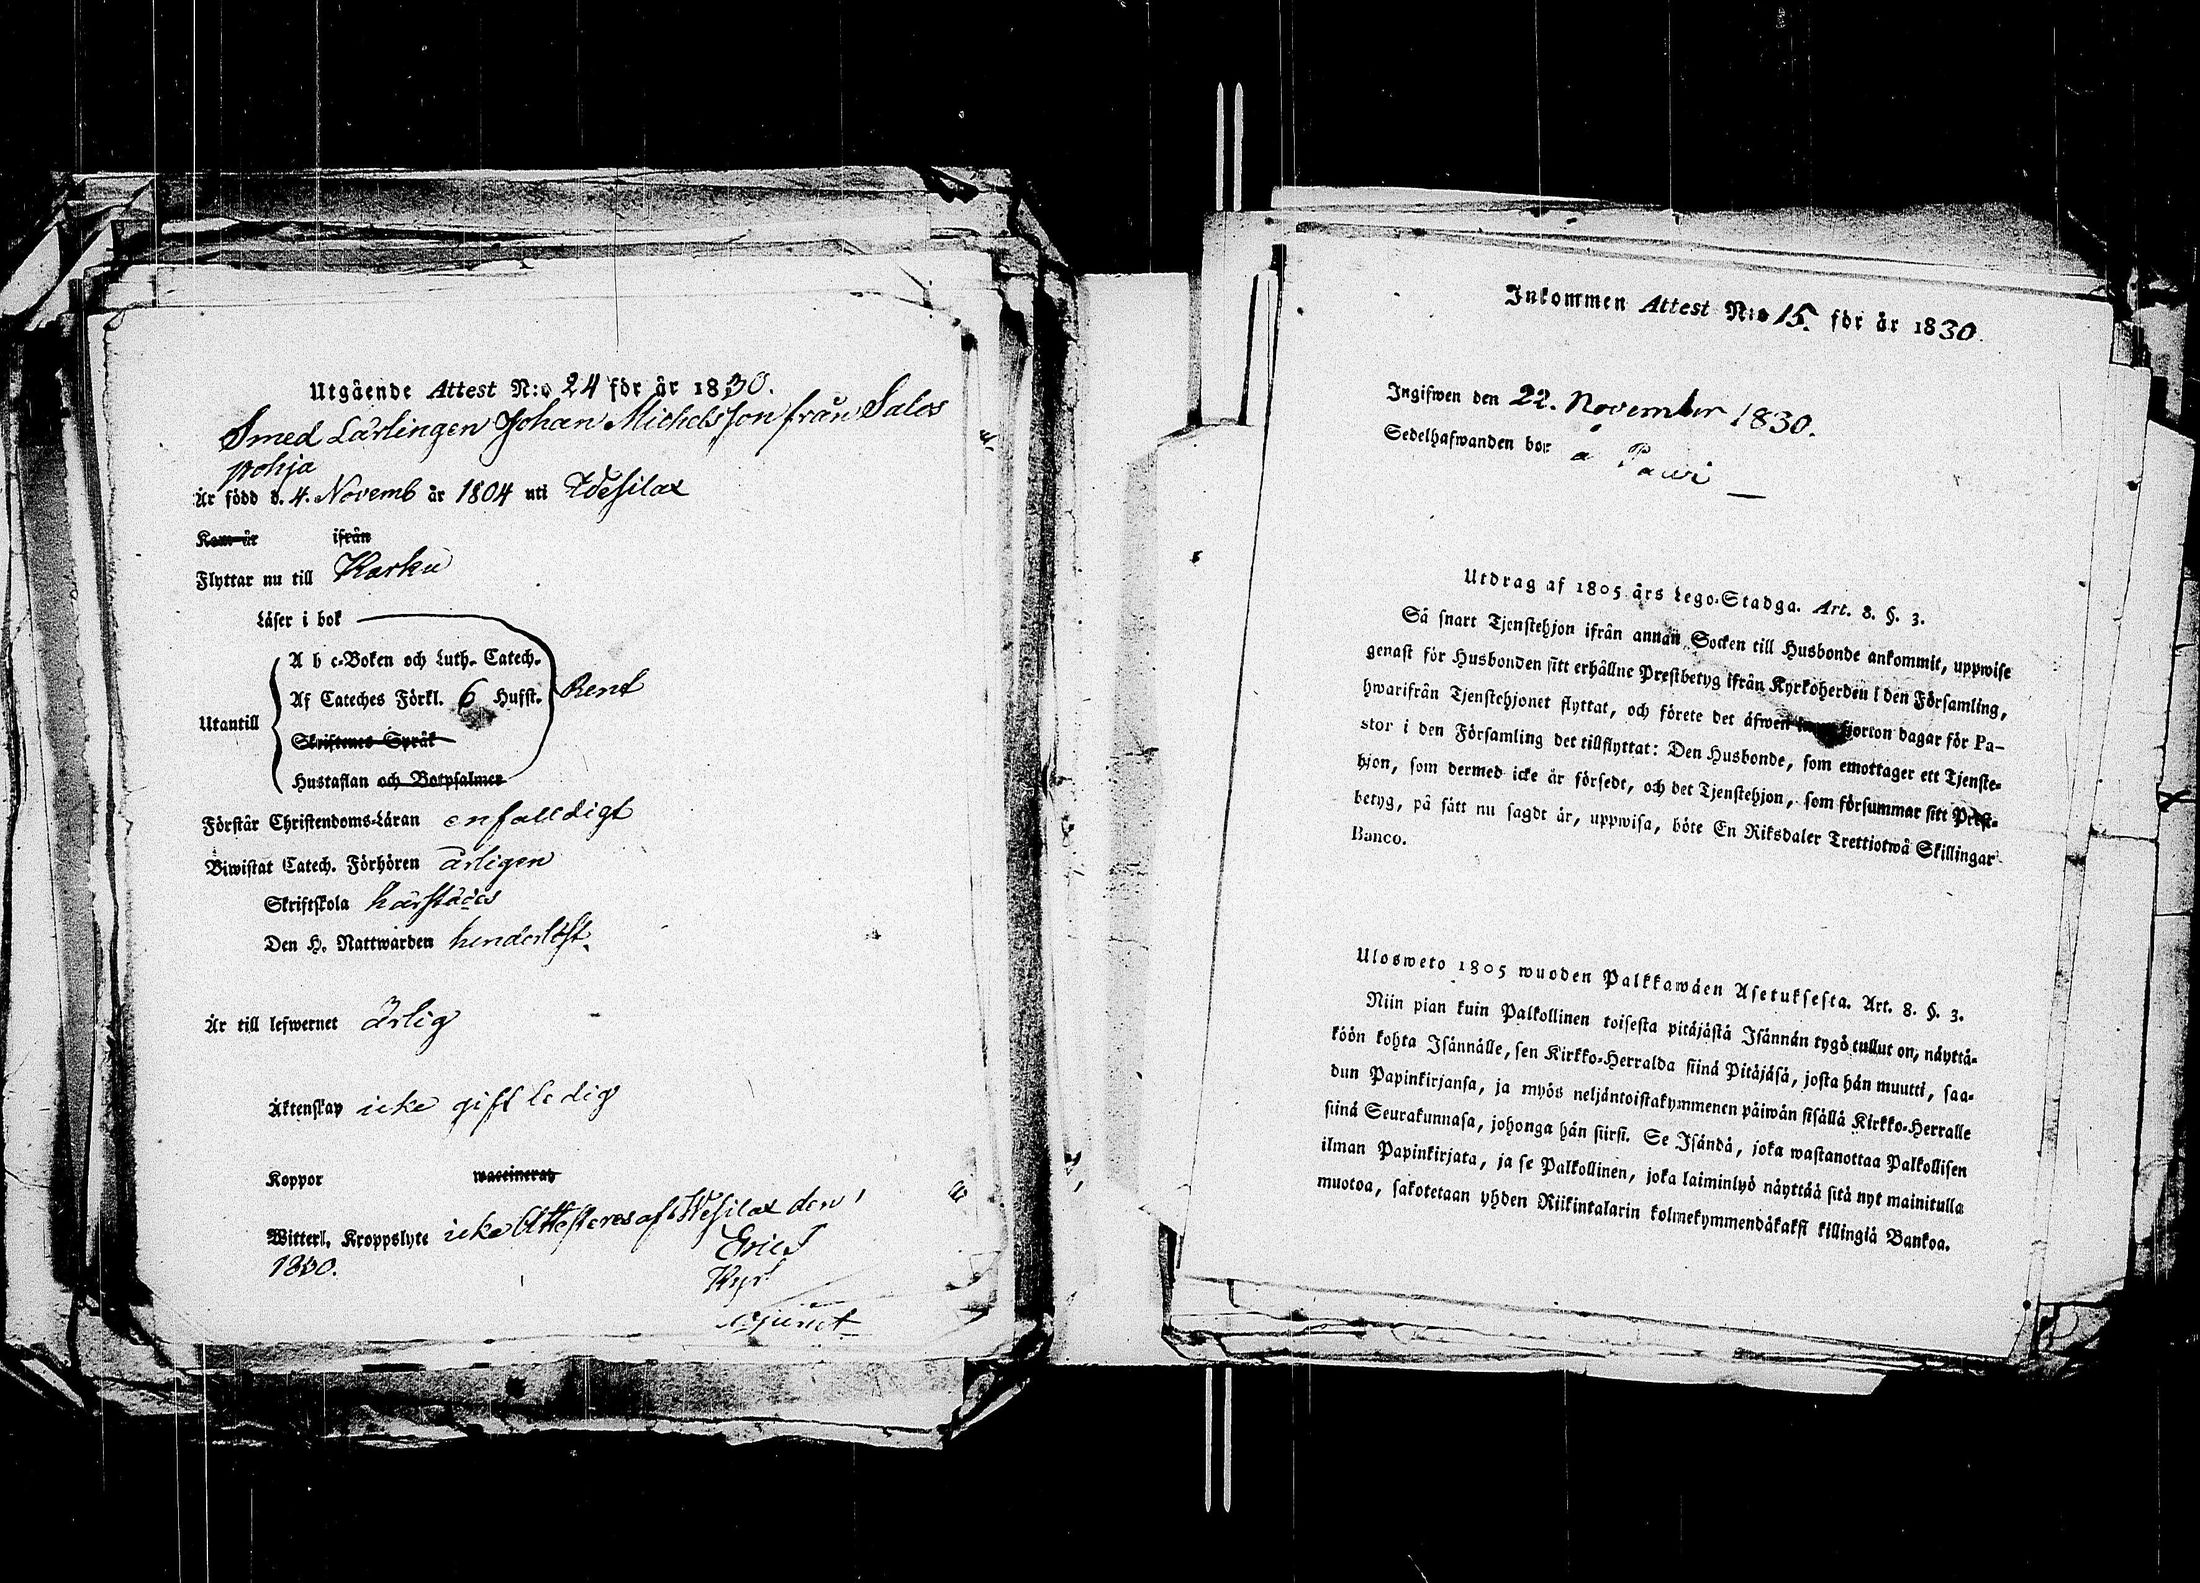 Utgående Attest N:o 24 för år 1830.
Smed Lärlingen Johan Michelsson från Salos
pohja
Är född d. 4. Novemb år 1804 uti Wesilax
Kom år ifrån
Flyttar nu till Karku
Läser i bok
A b c-Boken och Luth. Catech.
Af Cateches Förkl. 6 Hufst. Rent
Utantill
Skriftenes Språk
Hustaflan och Botpsalmer
Förstår Christendoms-Läran enfalldigt
Biwistat Catech. Förhören årligen
Skriftskola härstädes
Den H. Nattwarden hinderlöst.
Är till lefwernet ärlig
Äktenskap icke gift ledig
Koppor waccinerad
Witterl. Kroppslyte icke Attesteres af Wesilax den 1
1830.
Adjunct
Inkommen Attest N:o 15. för år 1830.
Ingifwen den 22. November 1830.
Sedelhafwanden bor å
Utdrag af 1805 års Lego-Stadga. Art. 8. §. 3.
Så snart Tjenstehjon ifrån annan Socken till Husbonde ankommit, uppwise
genast för Husbonden sitt erhållne Prestbetyg ifrån Kyrkoherden i den Församling,
hwarifrån Tjenstehjonet flyttat, och förete det äfwen inom fjorton dagar för Pa-
stor i den Församling det tillflyttat: Den Husbonde, som emottager ett Tjenste-
hjon, som dermed icke är försedt, och det Tjenstehjon, som försummar sitt Prest-
betyg, på sätt nu sagdt är, uppwisa, böte En Riksdaler Trettiotwå Skillingar
Banco.
Ulosweto 1805 wuoden Palkkawäen Asetuksesta. Art. 8. §. 3.
Niin pian kuin Palkollinen toisesta pitäjästä Isännän tygö tullut on, näyttä-
köön kohta Isännälle, sen Kirkko-Herralda siinä Pitäjäsä, josta hän muutti, saa-
dun Papinkirjansa, ja myös neljäntoistakymmenen päiwän sisällä Kirkko-Herralle
siinä Seurakunnasa, johonga hän siirsi. Se Isändä, joka wastanottaa Palkollisen
ilman Papinkirjata, ja se Palkollinen, joka laiminlyö näyttää sitä nyt mainitulla
muotoa, sakotetaan yhden Riikintalarin kolmekymmendäkaksi killingiä Bankoa.